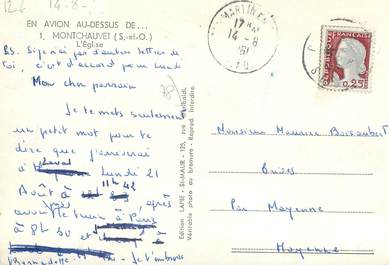 14-8-
EN AVION AU-DESSUS DE...
1. MONTCHAUVET (S.-et-O.)
L'Église
PS. Si je n'ai pas d'autres lettres de
toi, c'est d'accord pour lundi
Mon cher parrain
Je te mets seulement
un petit mot pour te
dire que j'arriverai
à Laval lundi 21
Août à 11h 42
après
avoir
à Paris
à 8h 30 et
Je t'embrasse
Bernadette
Edition LAPIE - St-MAUR - 125, rue Garibaldi.
Véritable photo au bromure - Reprod. interdite.
17H
14-8
REPUBLIQUE FRANÇAISE
0,25
Monsieur Maurice
par Mayenne
Mayenne